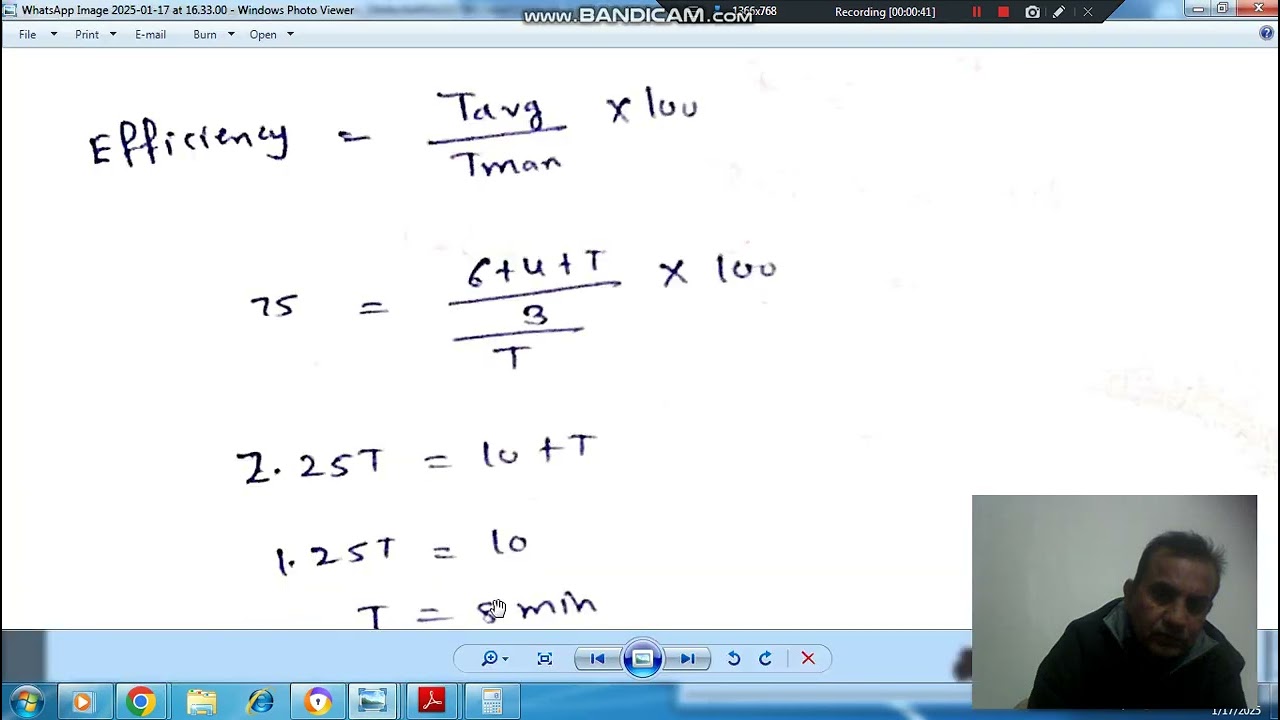 WhatsApp Image 2025-01-17 at 16.33.00 - Windows Photo Viewer
www.BANDICAM.com
1366x768
Recording [00:00:41]
File Print E-mail Burn Open
Efficiency = Tavg / Tman × 100
75 = 6+4+T / 3 / T × 100
2.25T = 10 + T
1.25T = 10
T = 8 min
1/17/2025